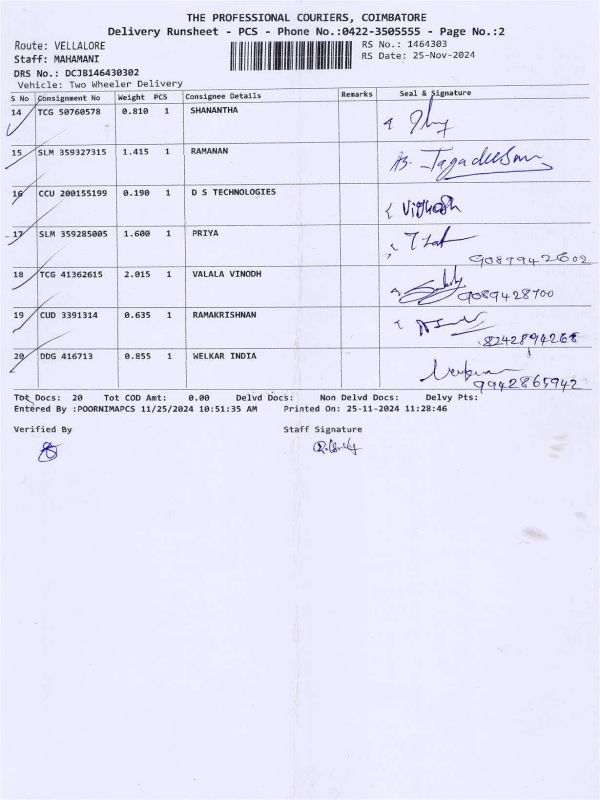 THE PROFESSIONAL COURIERS, COIMBATORE
Delivery Runsheet - PCS - Phone No.:0422-3505555 - Page No.:2
Route: VELLALORE RS No.: 1464303
Staff: MAHAMANI RS Date: 25-Nov-2024
DRS No.: DCJB146430302
Vehicle: Two Wheeler Delivery
S No Consignment No Weight PCS Consignee Details Remarks Seal & Signature
14 TCG 50760578 0.810 1 SHANANTHA
15 SLM 359327315 1.415 1 RAMANAN
16 CCU 200155199 0.190 1 D S TECHNOLOGIES
17 SLM 359285005 1.600 1 PRIYA
9087942602
18 TCG 41362615 2.015 1 VALALA VINODH
9089428700
19 CUD 3391314 0.635 1 RAMAKRISHNAN
8242894268
20 DDG 416713 0.855 1 WELKAR INDIA
9942865942
Tot Docs: 20 Tot COD Amt: 0.00 Delvd Docs: Non Delvd Docs: Delvy Pts:
Entered By :POORNIMAPCS 11/25/2024 10:51:35 AM Printed On: 25-11-2024 11:28:46
Verified By Staff Signature